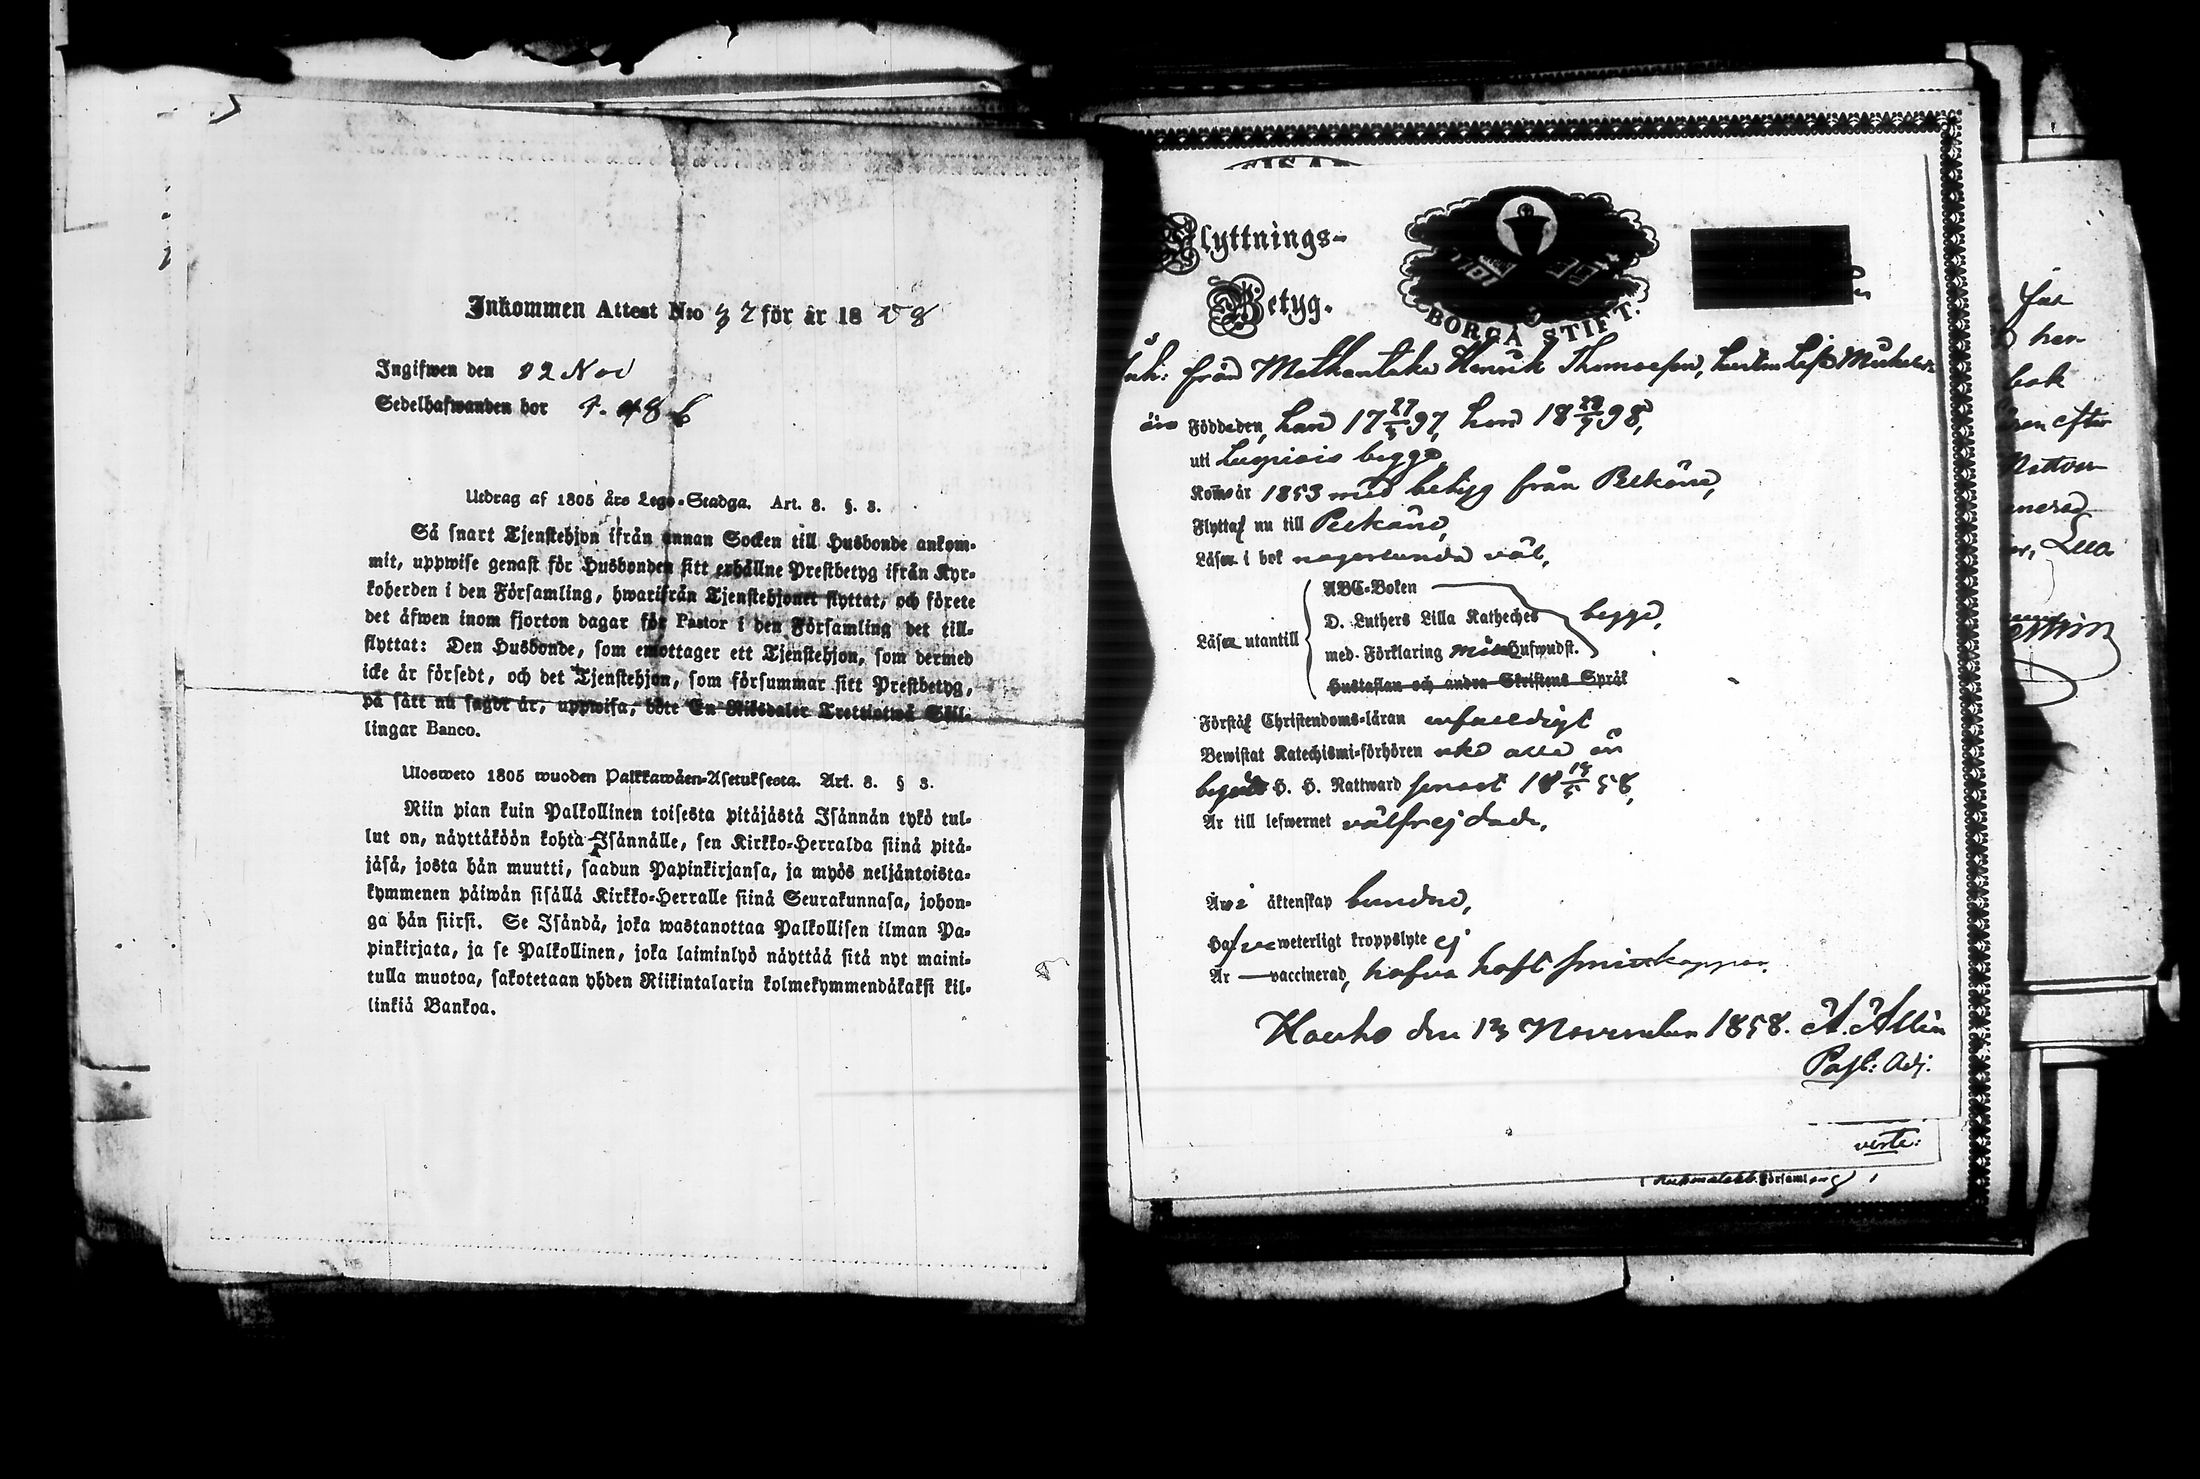 Inkommen Attest N:o 32 för år 1858
Ingifwen den 22 Nov
Sedelhafwanden bor f. 486
Utdrag af 1805 års Lego-Stadga. Art. 8. §. 3.
Så snart Tjenstehjon ifrån annan Socken till Husbonde ankom-
mit, uppwise genast för Husbonden sitt erhållne Prestbetyg ifrån Kyr-
koherden i den Församling, hwarifrån Tjenstehjonet flyttat, och förete
det äfwen inom fjorton dagar för Pastor i den Församling det till-
flyttat: Den Husbonde, som emottager ett Tjenstehjon, som dermed
icke är försedt, och det Tjenstehjon, som försummar sitt Prestbetyg,
på sätt nu sagdt är, uppwisa, böte En Riksdaler Trettiotwå Skil-
lingar Banco.
Ulosweto 1805 wuoden Palkkawäen-Asetuksesta. Art. 8. § 3.
Niin pian kuin Palkollinen toisesta pitäjästä Isännän tykö tul-
lut on, näyttäköön kohta Isännälle, sen Kirkko-Herralda siinä pitä-
jäsä, josta hän muutti, saadun Papinkirjansa, ja myös neljäntoista-
kymmenen päiwän sisällä Kirkko-Herralle siinä Seurakunnasa, johon-
ga hän siirsi. Se Isändä, joka wastanottaa Palkollisen ilman Pa-
pinkirjata, ja se Palkollinen, joka laiminlyö näyttää sitä nyt maini-
tulla muotoa, sakotetaan yhden Riikintalarin kolmekymmendäkaksi kil-
linkiä Bankoa.
Flyttnings-
Betyg.
BORGÅ STIFT.
från Henrik Thomasson, hustru Lisa
äro Födde den, han 17 27/3 97, hon 18 28/9 98,
uti Luopiois begge
Komo år 1853 med betyg från Pelkäne,
Flytta nu till Pelkäne,
Läsa i bok någorlunda väl,
Läsa utantill
ABC-Boken
D. Luthers Lilla Katheches begge,
med. Förklaring Hufwudst.
Hustaflan och andra Skriftens Språk
Förstå Christendoms-läran enfaldigt
Bewistat Katechismi-förhören
begått H. H. Nattward senast 18 /5 58,
Är till lefwernet välfrejdade,
Äro i äktenskap bundne,
Hafve weterligt kroppslyte ej
Är — vaccinerad, hafva haft smittkoppor.
Hauho den 13 November 1858. A. Allén
Past: Adj.
verte:
Församling
för
hon
bok
efter
Nattvar